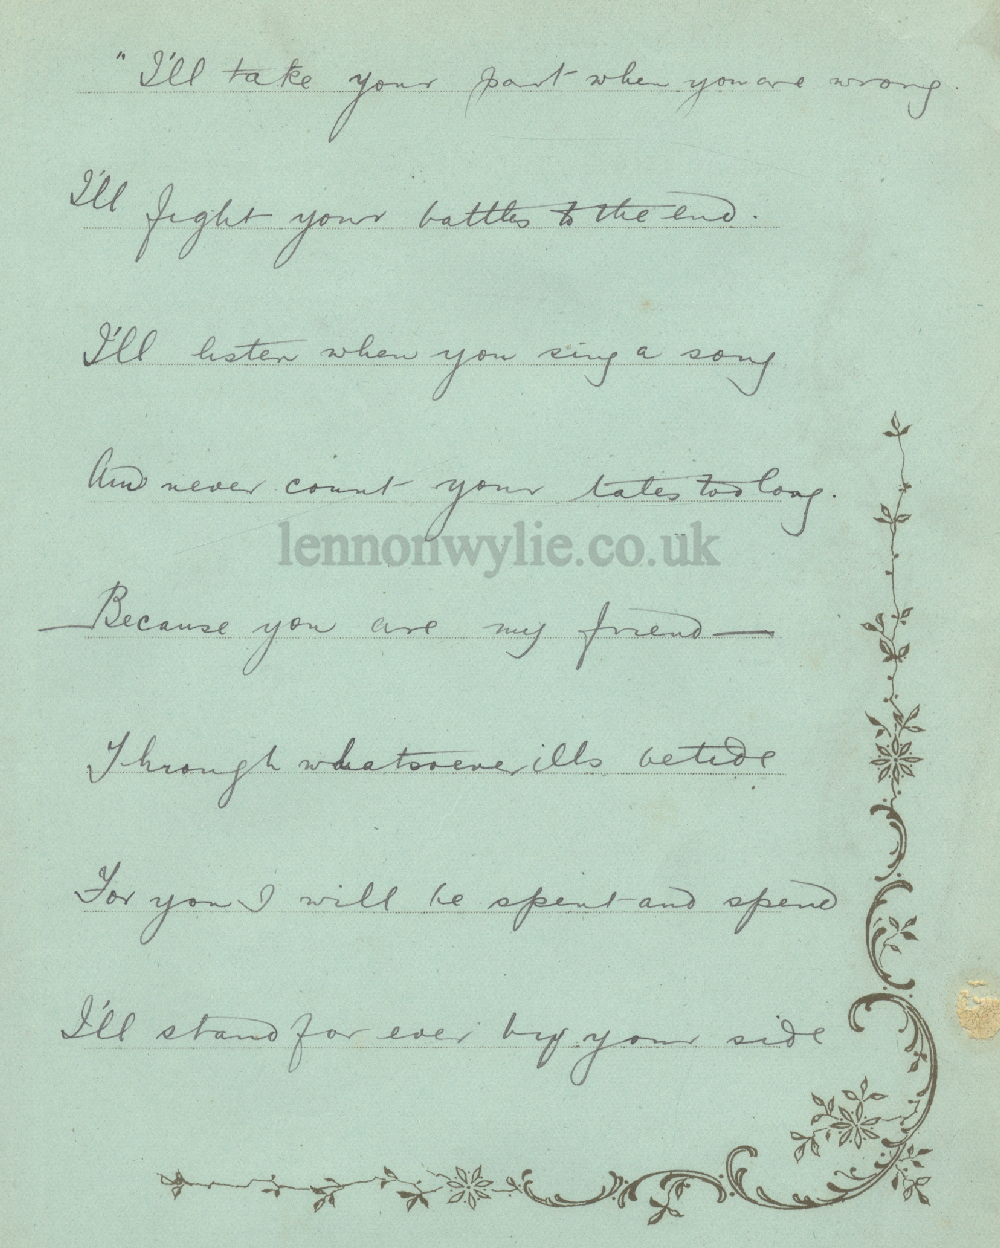 "I'll take your part when you are wrong
I'll fight your battles to the end.
I'll listen when you sing a song
And never count your tales too long.
lennonwylie.co.uk
— Because you are my friend —
Through whatsoever ills betide
For you I will be spent and spend
I'll stand for ever by your side